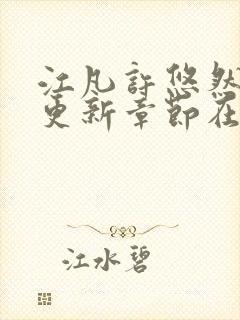 江凡许悠然
更新章节在
江水碧